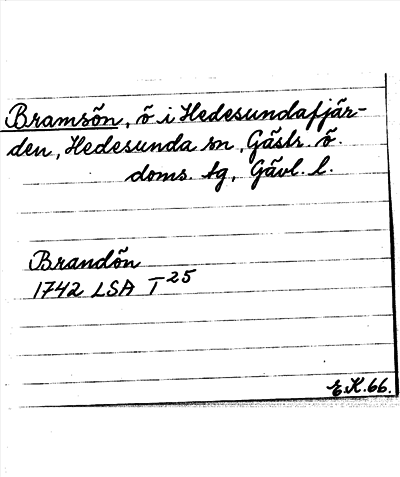 Bramsön, ö i Hedesundafjär-
den, Hedesunda sn, Gästr. ö.
doms. tg, Gävl. l.
Brandön
1742 LSA T 25
E.K. 66.